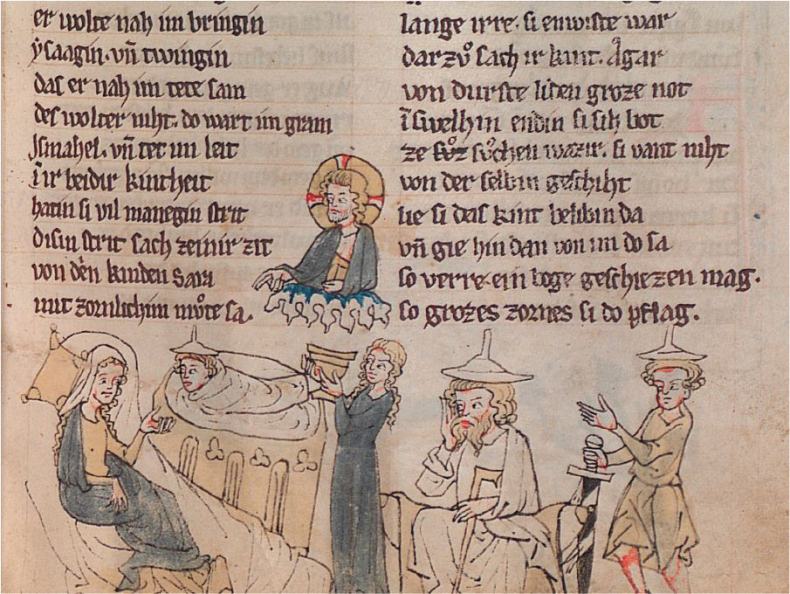 er wolte nah im bringin
ẏsaagin. vn̄ twingin
das er nah im tete sam
des wolter niht. do wart im gram
Jsmahel. vn̄ tet im leit
ir beidir kintheit
hatin si vil manegin strit
disin strit sach zeinir zit
von den kinden Sara
mit zornlichim můte sa.
lange irre. si enwiste war
darzů sach ir kint. Agar
von durste liden groze not
swelhin endin si sih bot
ze sůchen wazir. si vant niht
von der selbin geschiht
lie si das kint belibin da
vn̄ gie hin dan von im do sa
so verre. ein boge geschiezen mag.
so grozes zornes si do pflag.